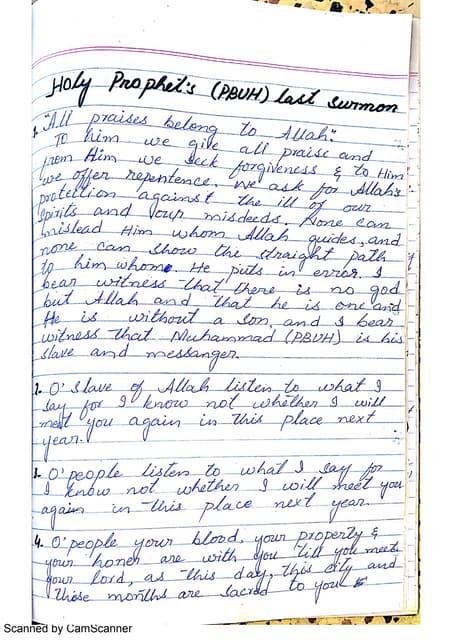 Holy Prophet's (PBUH) last surmon
1. "All praises belong to Allah".
To him we give all praise and
from Him we seek forgiveness & to Him
we offer repentence. We ask for Allah's
protection against the ill of our
spirits and our misdeeds. None can
mislead Him whom Allah guides, and
none can show the straight path
to him whom He puts in error. I
bear witness that there is no god
but Allah and that he is one and
He is without a son, and I bear
witness that Muhammad (PBUH) is his
slave and messanger.
2. O' slave of Allah listen to what I
say for I know not whether I will
meet you again in this place next
year.
3. O' people listen to what I say for
I know not whether I will meet you
again in this place next year.
4. O' people your blood, your property &
your honer are with you till you meet
your lord, as this day, this city and
those months are sacred to you
Scanned by CamScanner